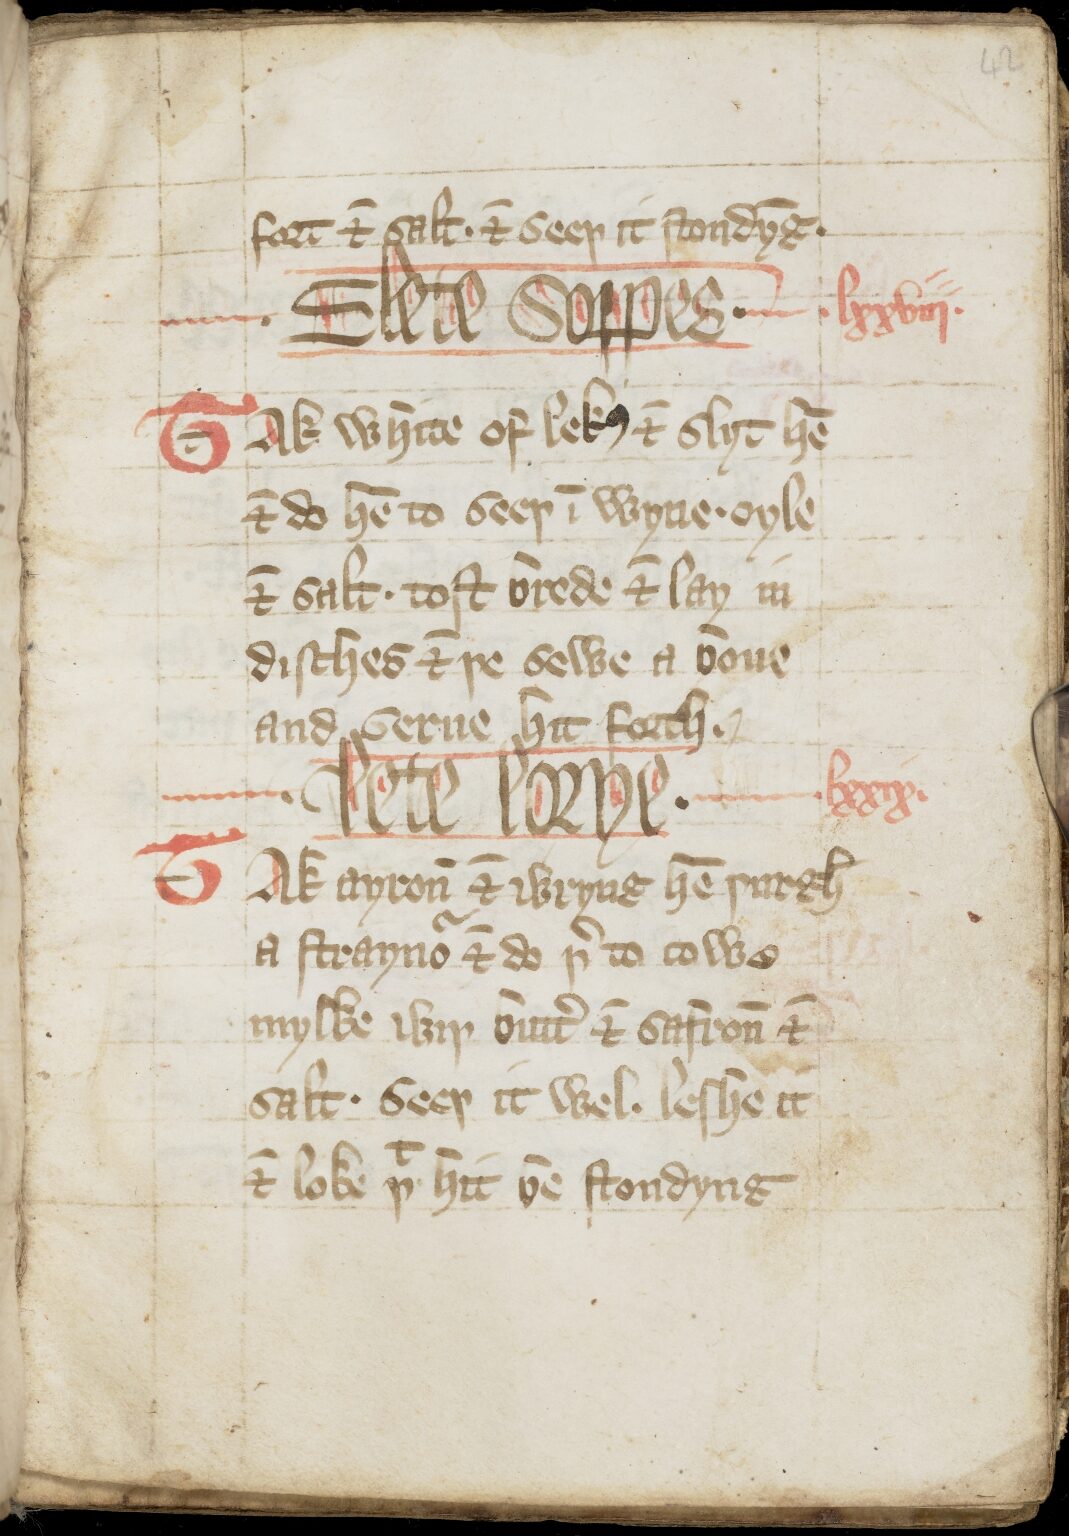 42
fort & salt. & seeþ it stondyng.
Slete Soppes. lxxviii.
Tak white of lekꝭ & slyt hē
& do hē to seeþ ī wyne. oyle
& salt. tost brede & lay in
disches & þe sewe a boue
and serue hit forth.
lete lorye. lxxix.
Tak ayron̄ & wryng hē þurgh
a straynoʳ & do þ̉ to cowe
mylke wiþ butt̉ & safron̄ &
salt. seeþ it wel. leshe it
& loke þᵗ hit be stondyng